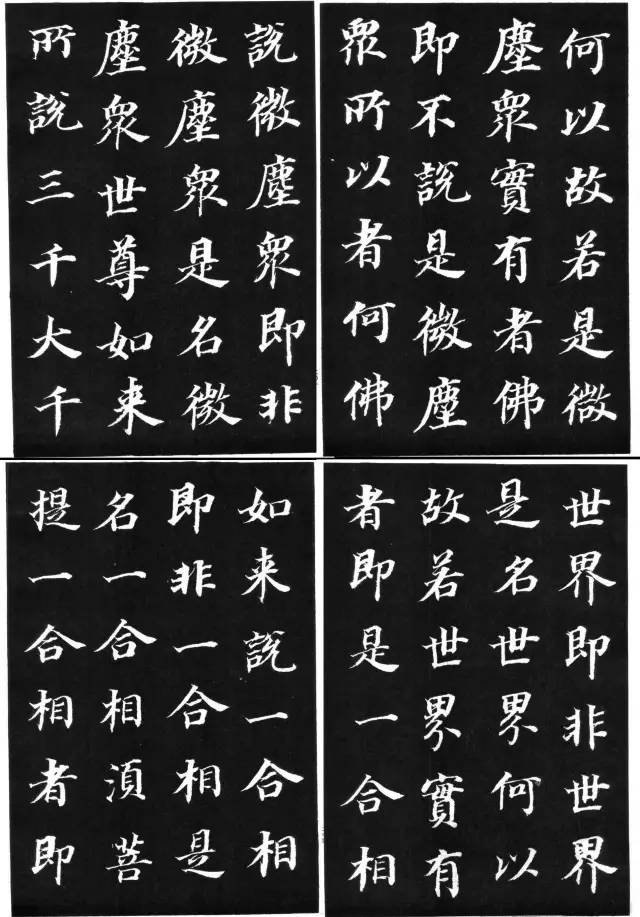 何以故若是微
塵衆實有者佛
即不說是微塵
衆所以者何佛
說微塵衆即非
微塵衆是名微
塵衆世尊如来
所說三千大千
世界即非世界
是名世界何以
故若世界實有
者即是一合相
如来說一合相
即非一合相是
名一合相湏菩
提一合相者即